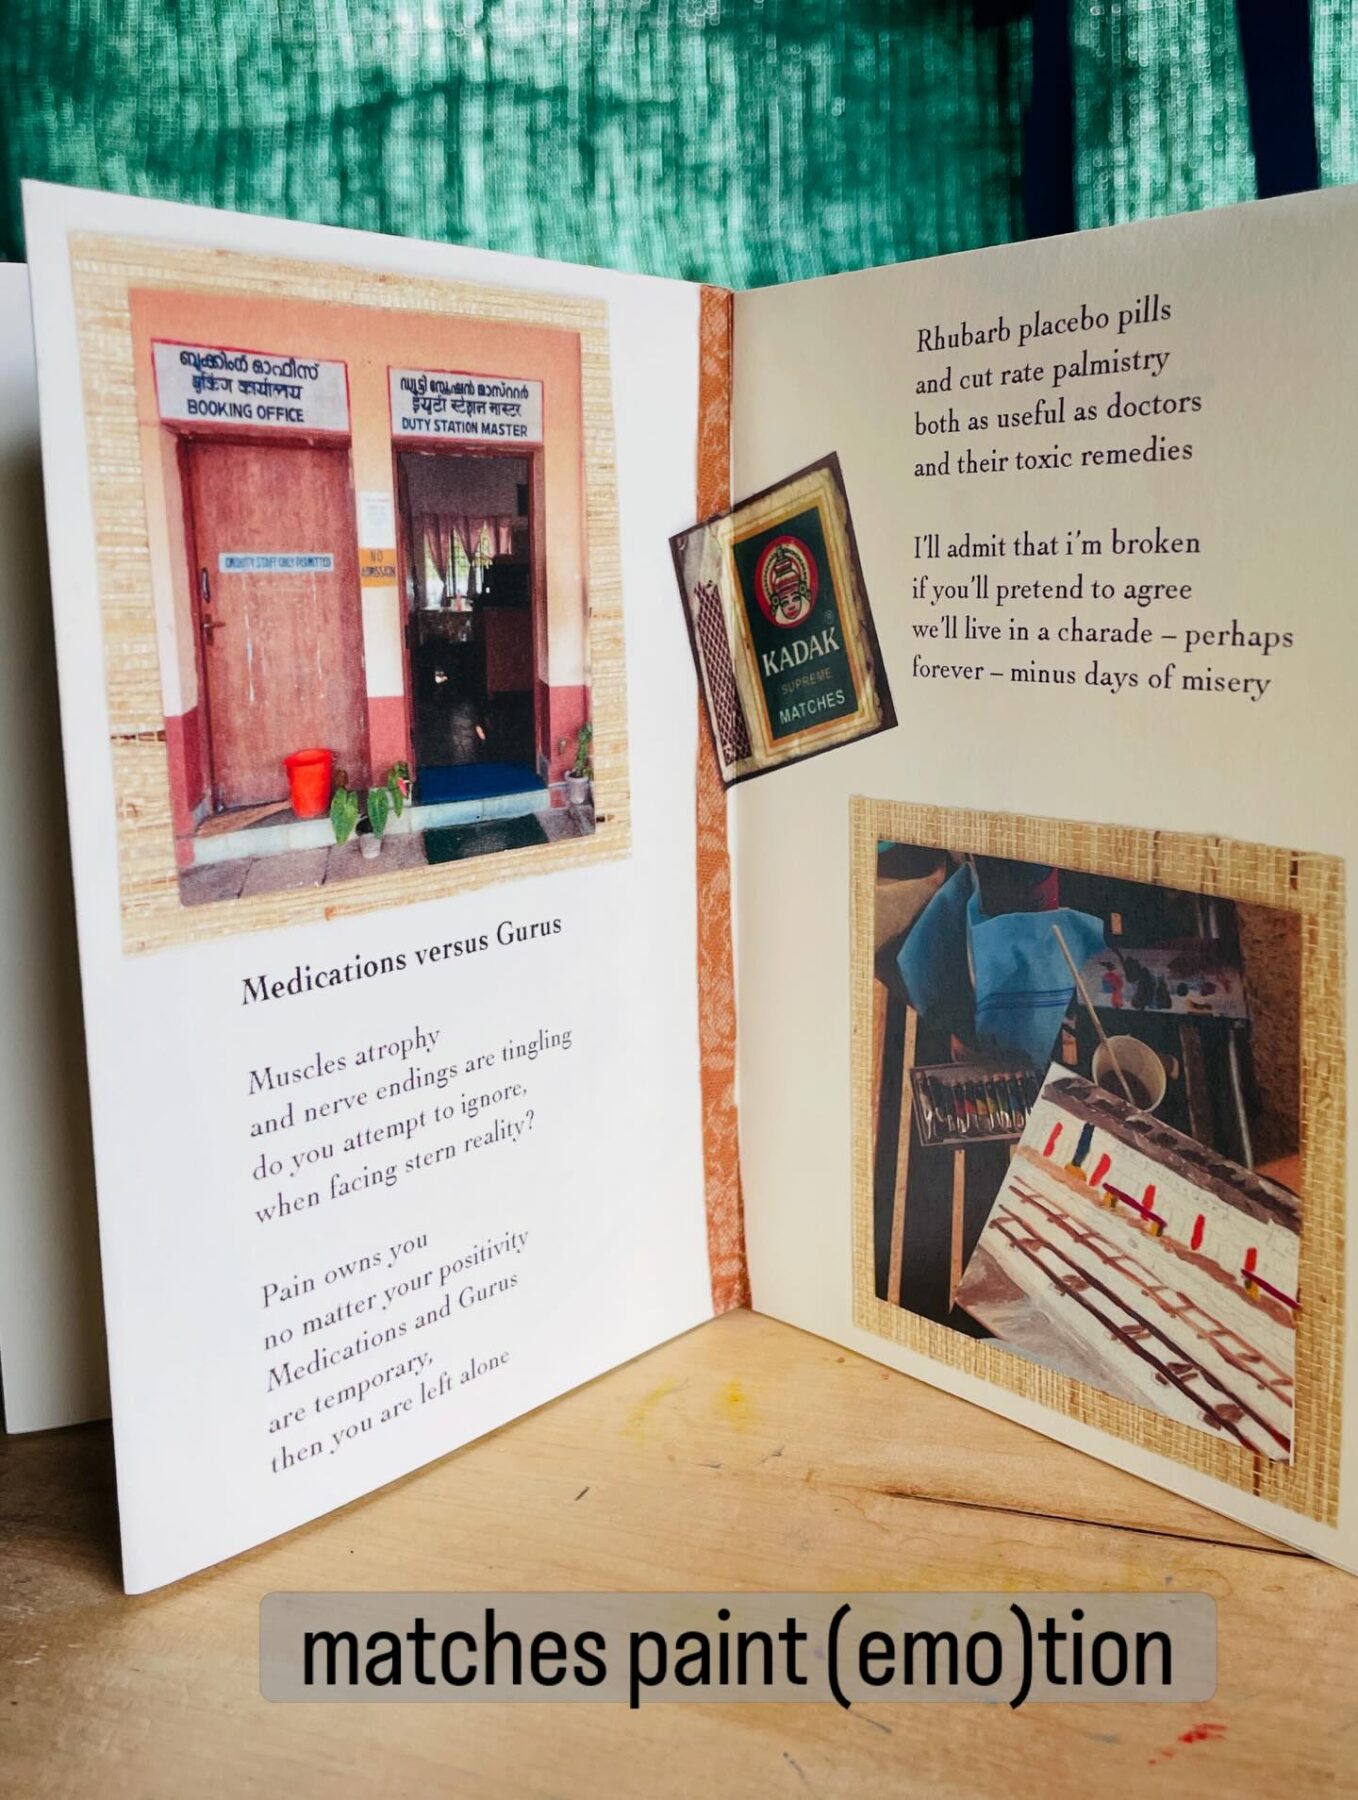 ബുക്കിംഗ് ഓഫീസ്
बुकिंग कार्यालय
BOOKING OFFICE
ഡ്യൂട്ടി സ്റ്റേഷൻ മാസ്റ്റർ
ड्यूटी स्टेशन मास्टर
DUTY STATION MASTER
ON DUTY STAFF ONLY PERMITTED
NO
ADMISSION
Medications versus Gurus
Muscles atrophy
and nerve endings are tingling
do you attempt to ignore,
when facing stern reality?
Pain owns you
no matter your positivity
Medications and Gurus
are temporary,
then you are left alone
KADAK
SUPREME
MATCHES
Rhubarb placebo pills
and cut rate palmistry
both as useful as doctors
and their toxic remedies
I'll admit that i'm broken
if you'll pretend to agree
we'll live in a charade – perhaps
forever – minus days of misery
matches paint (emo)tion